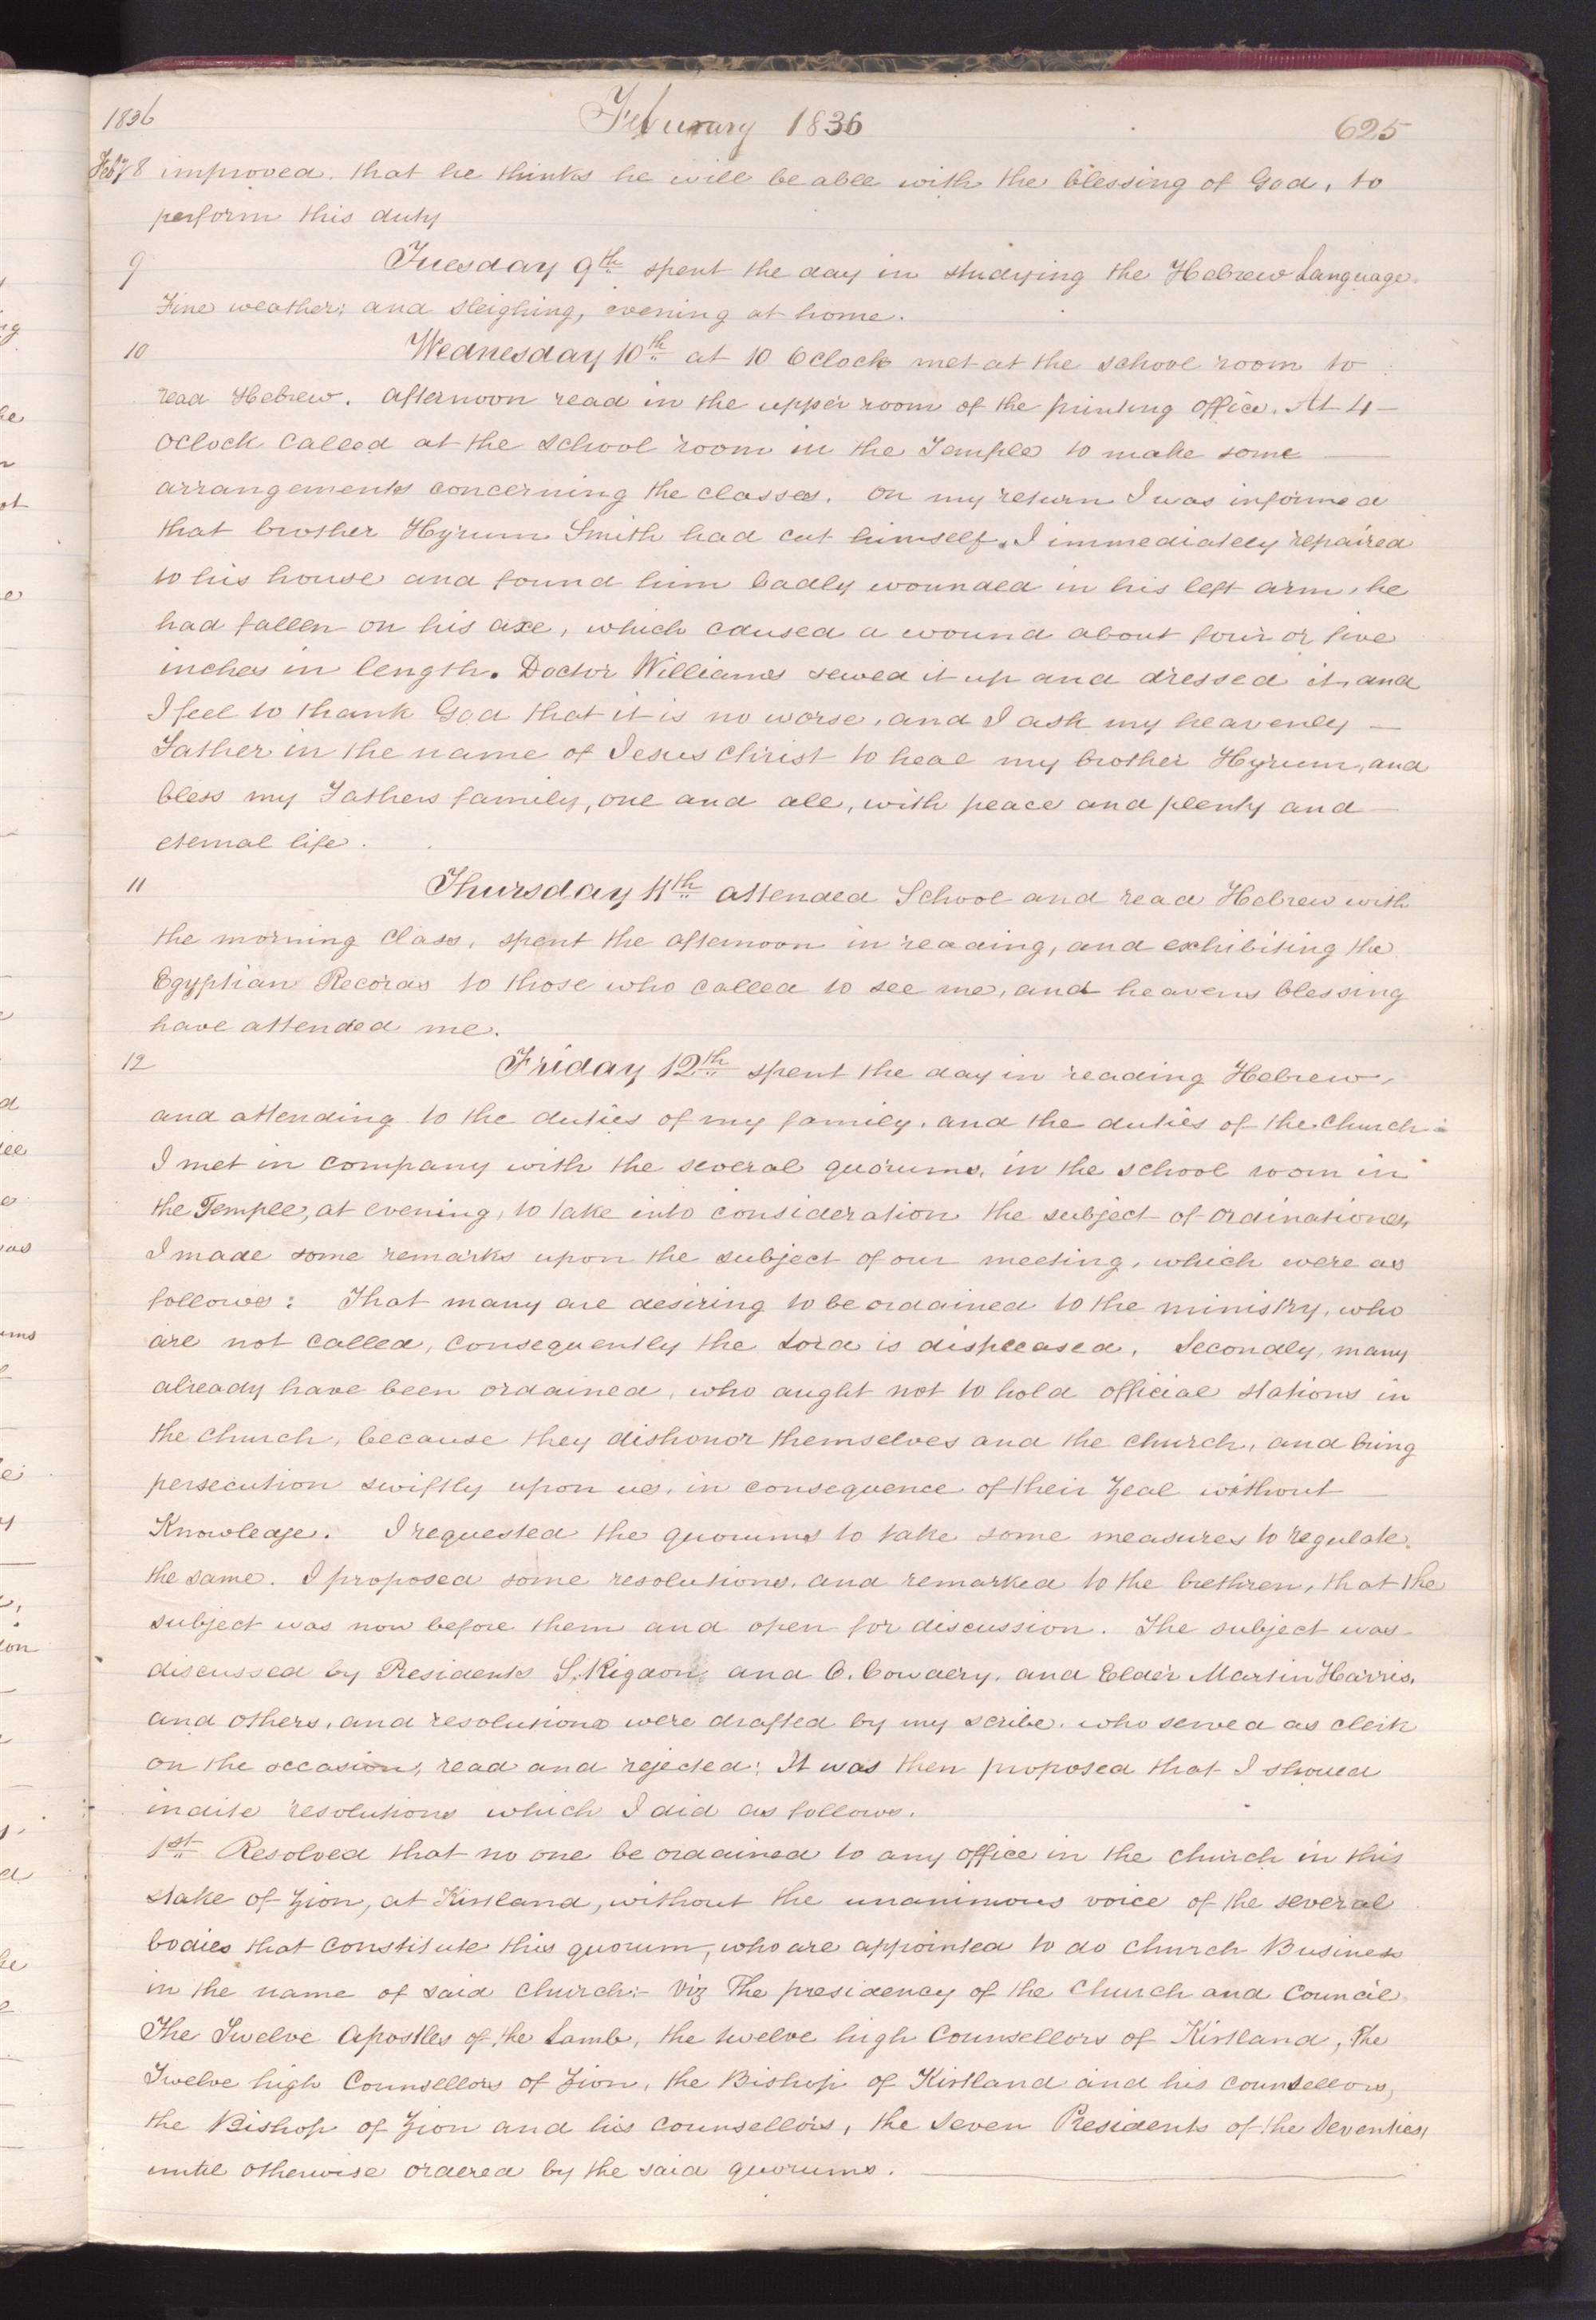 1836 February 1836 625
Feby 8 improved. that he thinks he will be able with the blessing of God, to
perform this duty
9 Tuesday 9th spent the day in studying the Hebrew Language.
Fine weather; and sleighing, evening at home.
10 Wednesday 10th at 10 Oclock met at the school room to
read Hebrew. afternoon read in the upper room of the printing office. At 4—
oclock called at the school room in the Temple to make some —
arrangements concerning the classes. on my return I was informed
that brother Hyrum Smith had cut himself. I immediately repaired
to his house and found him badly wounded in his left arm, he
had fallen on his axe, which caused a wound about four or five
inches in length. Doctor Williams sewed it up and dressed it, and
I feel to thank God that it is no worse, and I ask my heavenly —
Father in the name of Jesus Christ to heal my brother Hyrum, and
bless my Fathers family, one and all, with peace and plenty and —
eternal life.
11 Thursday 11th attended School and read Hebrew with
the morning Class, spent the afternoon in reading, and exhibiting the
Egyptian Records to those who called to see me, and heavens blessing
have attended me.
12 Friday 12th spent the day in reading Hebrew,
and attending to the duties of my family, and the duties of the church.
I met in company with the several quorums, in the school room in
the Temple, at evening, to take into consideration the subject of ordinations,
I made some remarks upon the subject of our meeting, which were as
follows: That many are desiring to be ordained to the ministry, who
are not called, consequently the Lord is displeased. Secondly, many
already have been ordained, who aught not to hold official stations in
the church, because they dishonor themselves and the church, and bring
persecution swiftly upon us, in consequence of their zeal without —
Knowledge. I requested the quorums to take some measures to regulate
the same. I proposed some resolutions, and remarked to the brethren, that the
subject was now before them and open for discussion. The subject was
discussed by Presidents S. Rigdon, and O. Cowdery, and Elder Martin Harris,
and others, and resolutions were drafted by my scribe, who served as clerk
on the occasion, read and rejected: It was then proposed that I should
indite resolutions which I did as follows.
1st Resolved that no one be ordained to any office in the church in this
stake of Zion, at Kirtland, without the unanimous voice of the several
bodies that constitute this quorum, who are appointed to do church Business
in the name of said church:- viz The presidency of the Church and Council.
The Twelve Apostles of the Lamb, the twelve high Counsellors of Kirtland, The
Twelve high Counsellors of Zion, the Bishop of Kirtland and his counsellors,
the Bishop of Zion and his counsellors, the seven Presidents of the Seventies,
until otherwise ordered by the said quorums. —